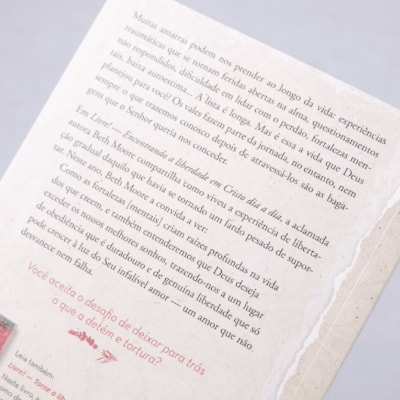 Muitas amarras podem nos prender ao longo da vida: experiências
traumáticas que se tornam feridas abertas na alma, questionamentos
não respondidos, dificuldade em lidar com o perdão, fortalezas men-
tais, baixa autoestima... A lista é longa. Mas é essa a vida que Deus
planejou para você? Os vales fazem parte da jornada, no entanto, nem
sempre o que trazemos conosco depois de atravessá-los são as baga-
gens que o Senhor queria nos conceder.
Em Livre! — Encontrando a liberdade em Cristo dia a dia, a aclamada
autora Beth Moore compartilha como viveu a experiência de liberta-
ção gradual daquilo que havia se tornado um fardo pesado de supor-
tar. Neste ano, Beth Moore a convida a ver:
Como as fortalezas [mentais] criam raízes profundas na vida
dos que creem, e também entenderemos que Deus deseja
exceder os nossos melhores sonhos, trazendo-nos a um lugar
de obediência que é duradouro e de genuína liberdade que só
pode crescer à luz do Seu infalível amor — um amor que não
desvanece nem falha.
Você aceita o desafio de deixar para trás
o que a detém e tortura?
Leia também:
Livre! — Torne a lib
Neste livro, a